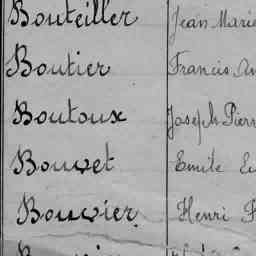 Bouteiller Jean Marie
Boutier Francis
Boutoux Joseph Pierr
Bouvet Emile
Bouvier Henri